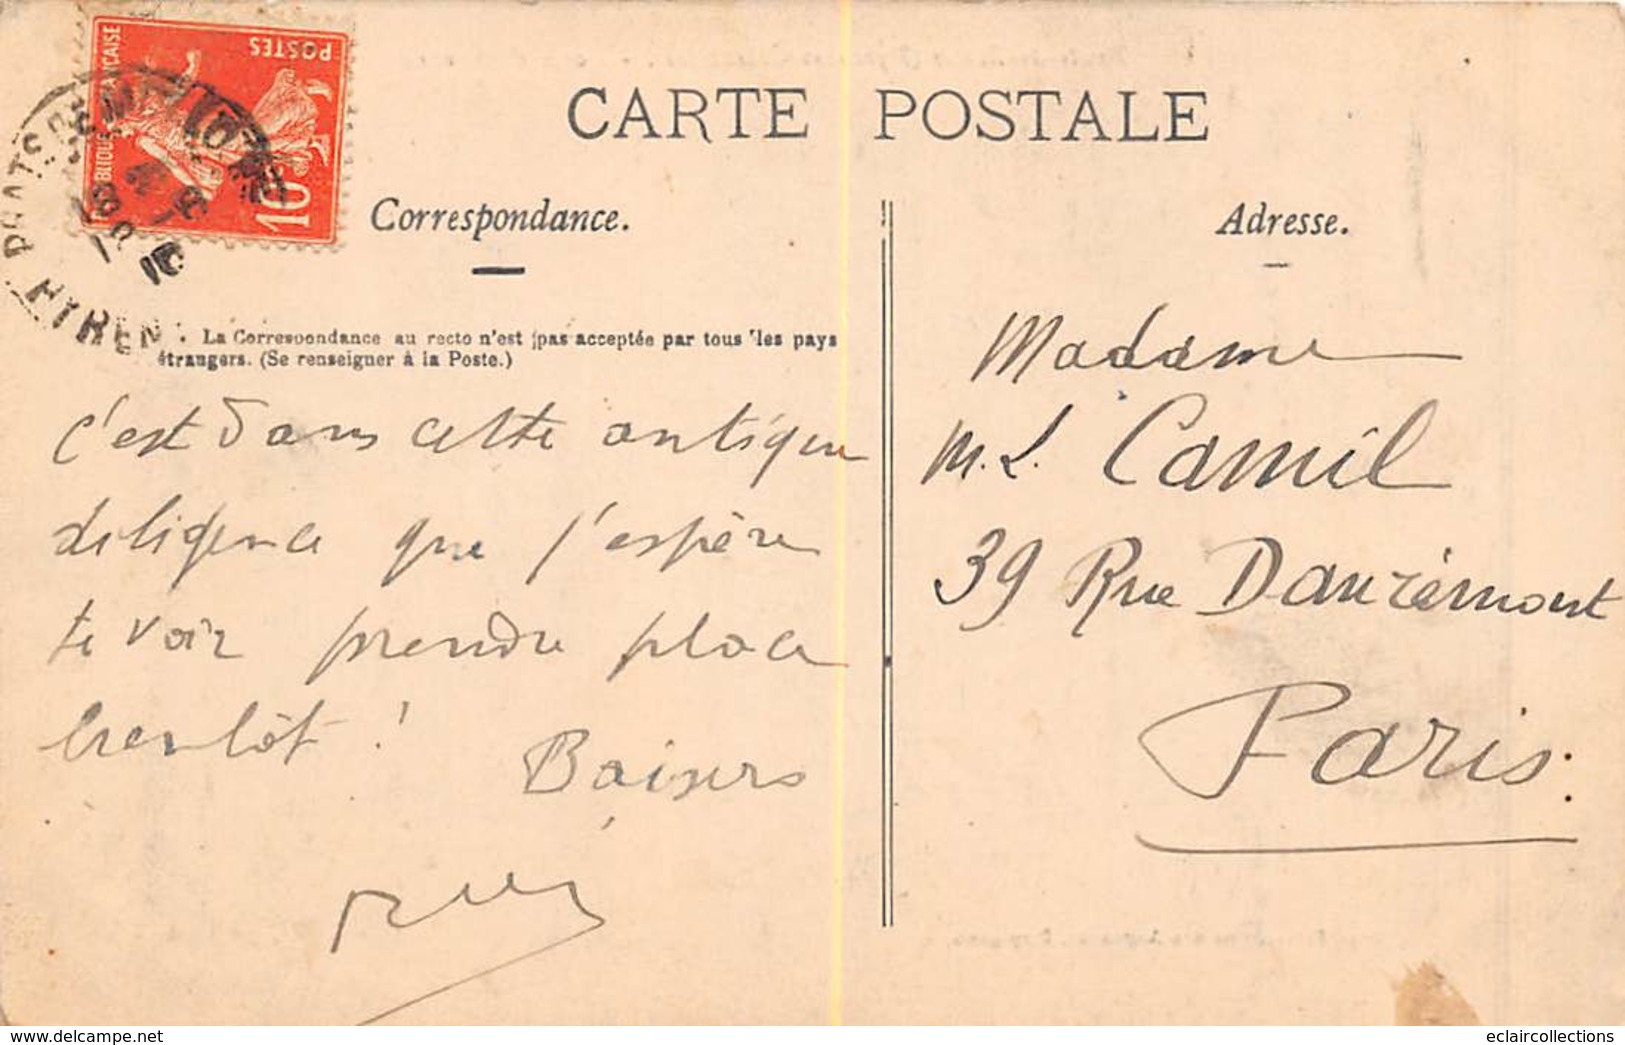 CARTE POSTALE
POSTES
10
PRATS
Correspondance.
Adresse.
La Correspondance au recto n'est pas acceptée par tous les pays
étrangers. (Se renseigner à la Poste.)
c'est dans cette antique
diligence que j'espère
te voir prendre place
bientôt !
Baisers
Madame
M. L. Camil
39 Rue Danrémont
Paris
www.delcampe.net
eclaircollections